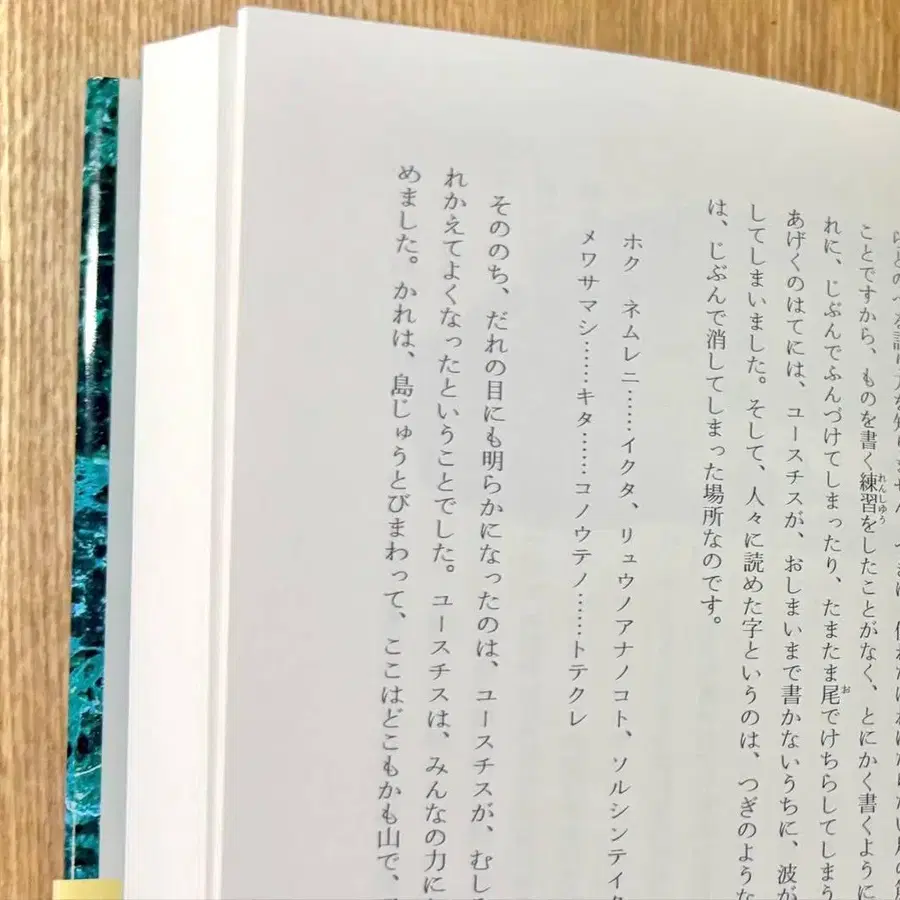 ことですから、ものを書く練習をしたことがなく、とにかく書くように
れに、じぶんでふんづけてしまったり、たまたま尾でけちらしてしまう
あげくのはてには、ユースチスが、おしまいまで書かないうちに、波が
してしまいました。そして、人々に読めた字というのは、つぎのような
は、じぶんで消してしまった場所なのです。
ホク　ネムレニ……イクタ、リュウノアナノコト、ソルシンテイク
メワサマシ……キタ……コノウテノ……トテクレ
そののち、だれの目にも明らかになったのは、ユースチスが、むしろ
れかえてよくなったということでした。ユースチスは、みんなの力に
めました。かれは、島じゅうとびまわって、ここはどこもかも山で、